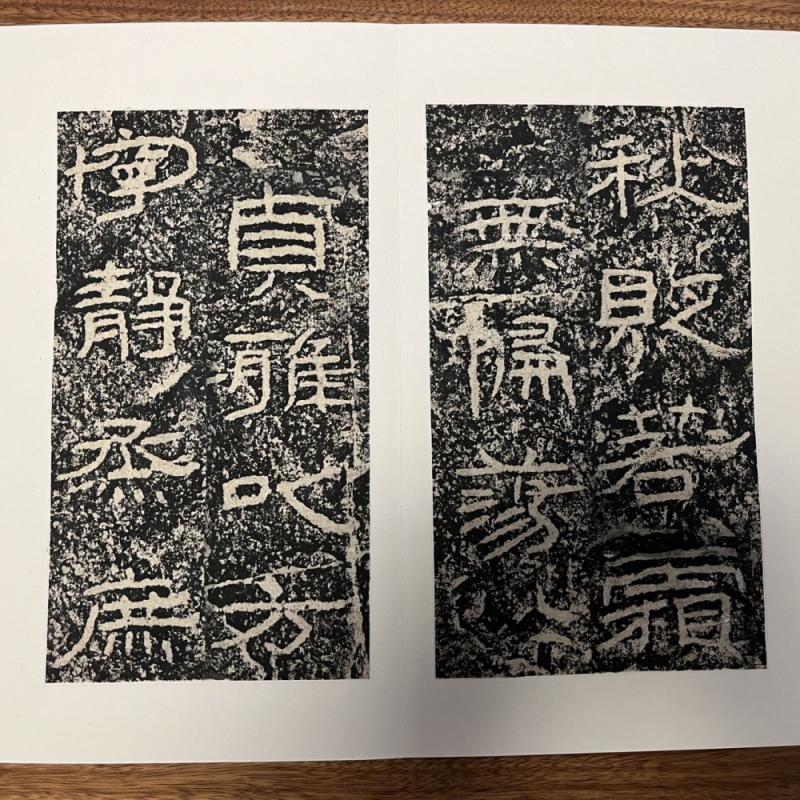 秋貶若霜
無偏蕩
貞雅以方
寧靜烝庶